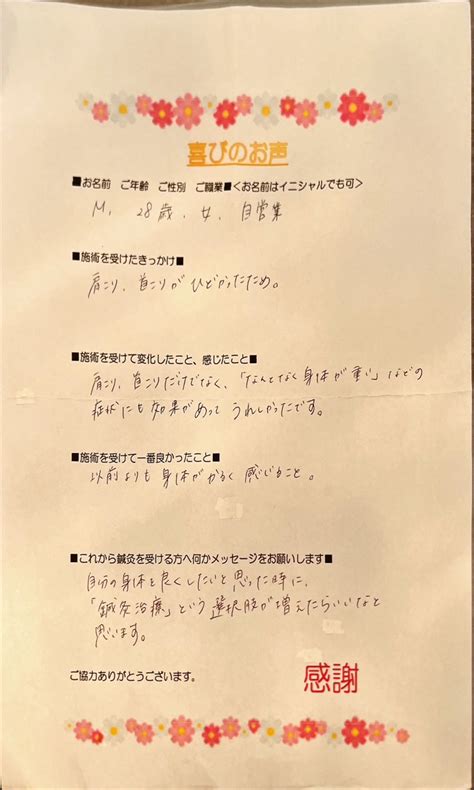 喜びのお声
■お名前 ご年齢 ご性別 ご職業■<お名前はイニシャルでも可>
M. 28歳. 女. 自営業
■施術を受けたきっかけ■
肩こり、首こりがひどかったため。
■施術を受けて変化したこと、感じたこと■
肩こり、首こりだけでなく、「なんとなく身体が重い」などの
症状にも効果があってうれしかったです。
■施術を受けて一番良かったこと■
以前よりも身体がかるく感じること。
■これから鍼灸を受ける方へ何かメッセージをお願いします■
自分の身体を良くしたいと思った時に、
「鍼灸治療」という選択肢が増えたらいいなと
思います。
ご協力ありがとうございます。
感謝